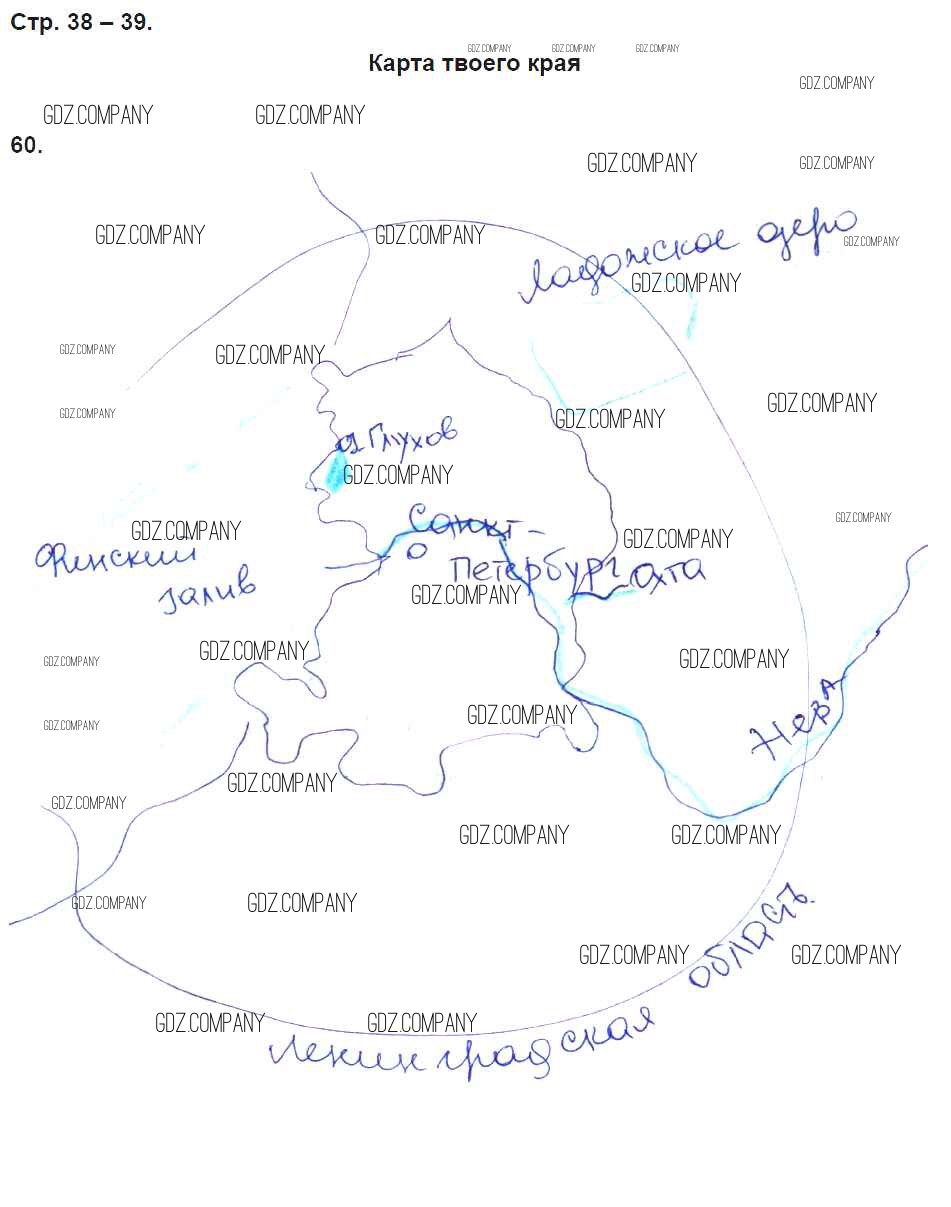 Стр. 38 – 39.
GDZ.COMPANY GDZ.COMPANY GDZ.COMPANY
Карта твоего края
GDZ.COMPANY
GDZ.COMPANY GDZ.COMPANY
60.
GDZ.COMPANY GDZ.COMPANY
GDZ.COMPANY GDZ.COMPANY
Ладожское озеро
GDZ.COMPANY
GDZ.COMPANY
GDZ.COMPANY GDZ.COMPANY
GDZ.COMPANY
GDZ.COMPANY GDZ.COMPANY
Глухов
GDZ.COMPANY
GDZ.COMPANY
Санкт-
GDZ.COMPANY GDZ.COMPANY
Финский
Петербург Охта
залив
GDZ.COMPANY
GDZ.COMPANY GDZ.COMPANY GDZ.COMPANY
GDZ.COMPANY GDZ.COMPANY
Нева
GDZ.COMPANY
GDZ.COMPANY
GDZ.COMPANY GDZ.COMPANY
GDZ.COMPANY GDZ.COMPANY
GDZ.COMPANY GDZ.COMPANY
GDZ.COMPANY GDZ.COMPANY
Ленинградская область